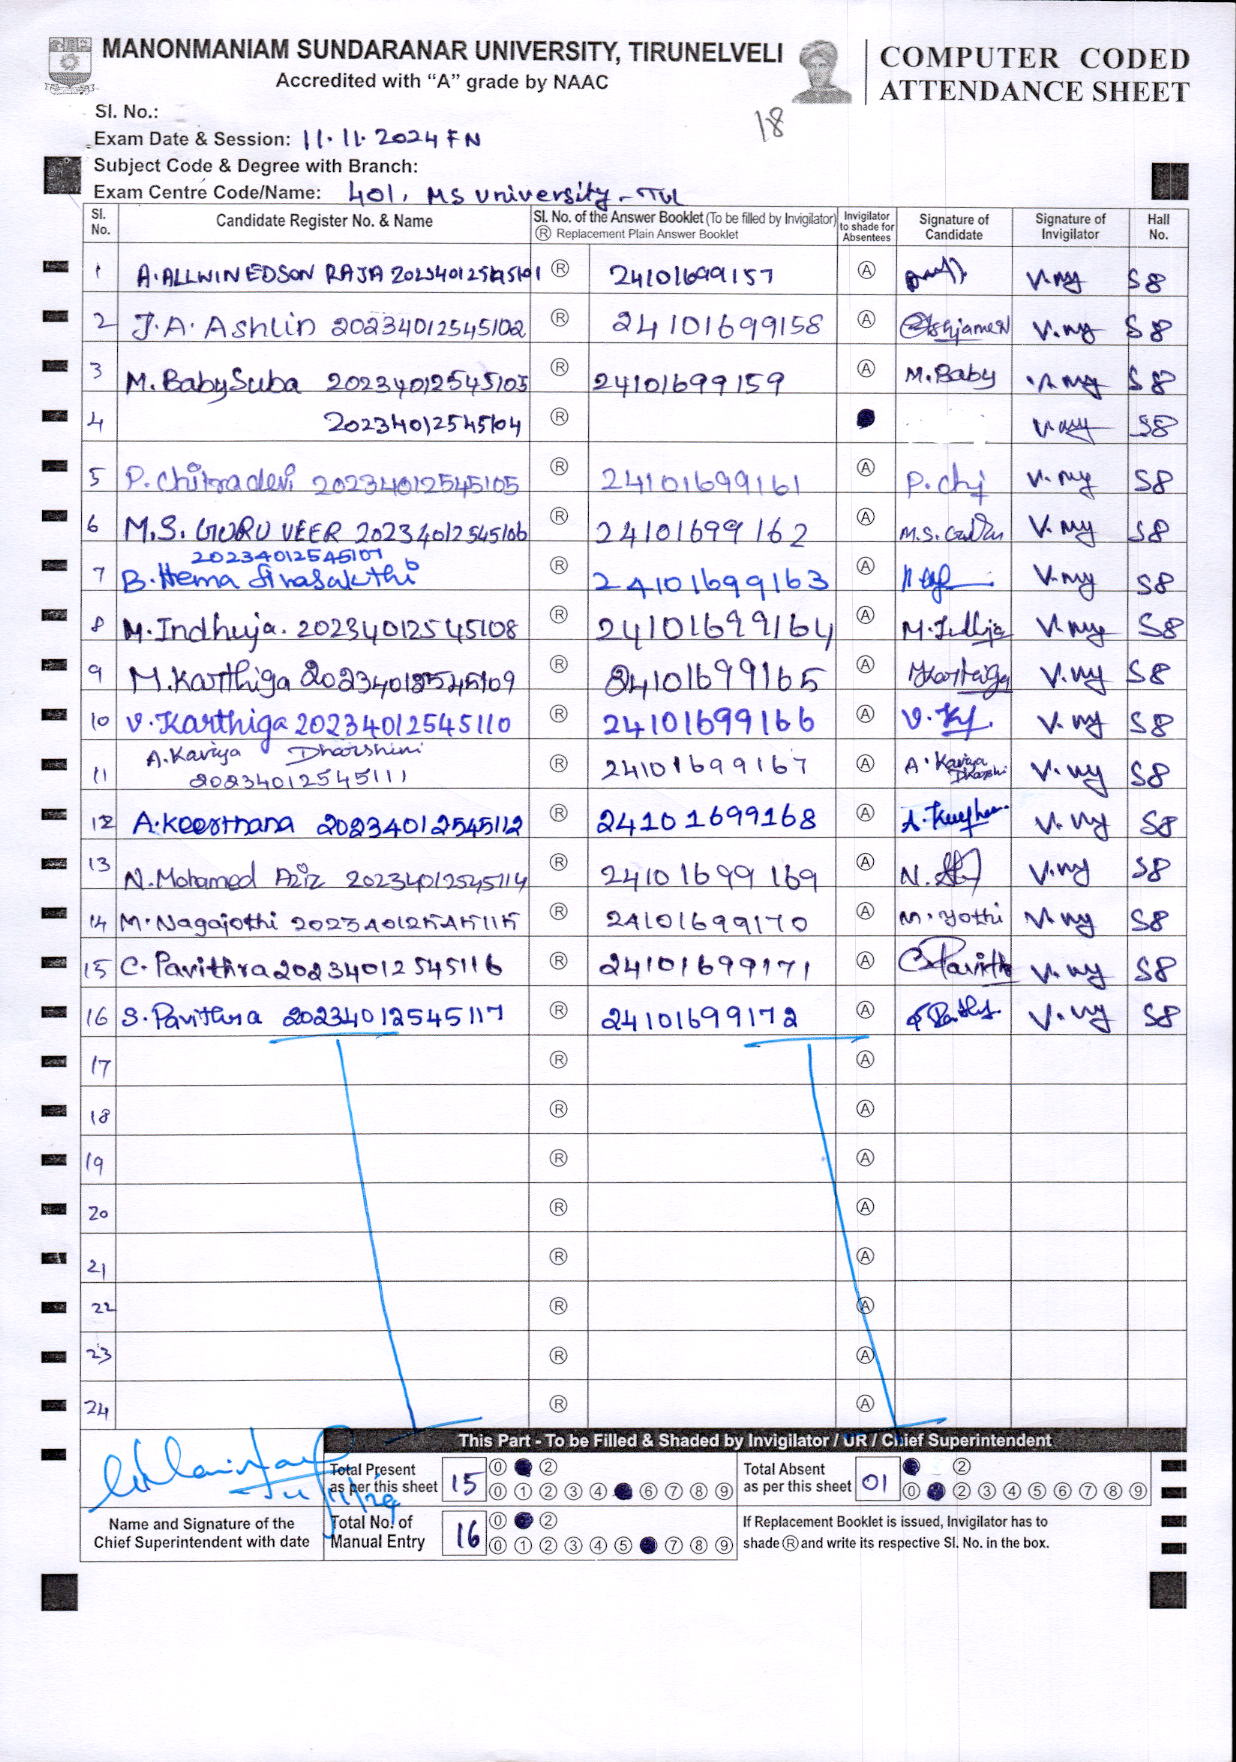 MANONMANIAM SUNDARANAR UNIVERSITY, TIRUNELVELI
Accredited with “A” grade by NAAC
COMPUTER CODED
ATTENDANCE SHEET
18
Sl. No.:
Exam Date & Session: 11.11.2024 FN
Subject Code & Degree with Branch:
Exam Centre Code/Name: 401, MS University - TVL
Sl. No. Candidate Register No. & Name Sl. No. of the Answer Booklet (To be filled by Invigilator) Ⓡ Replacement Plain Answer Booklet Invigilator to shade for Absentees Signature of Candidate Signature of Invigilator Hall No.
1 A. ALLWIN EDSON RAJA 20234012545101 Ⓡ 24101699157 Ⓐ V.my S8
2 J.A. Ashlin 20234012545102 Ⓡ 24101699158 Ⓐ V.my S8
3 M. Baby Suba 20234012545103 Ⓡ 24101699159 Ⓐ M.Baby V.my S8
4 20234012545104 Ⓡ V.my S8
5 P. Chitradevi 20234012545105 Ⓡ 24101699161 Ⓐ P.chj V.my S8
6 M.S. GURU VEER 20234012545106 Ⓡ 24101699162 Ⓐ M.S. V.my S8
7 20234012545107 B. Hema Sivasakthi Ⓡ 24101699163 Ⓐ V.my S8
8 M. Indhuja. 20234012545108 Ⓡ 24101699164 Ⓐ M. V.my S8
9 M. Karthiga 20234012545109 Ⓡ 24101699165 Ⓐ Karthiga V.my S8
10 V. Karthiga 20234012545110 Ⓡ 24101699166 Ⓐ V. Ky V.my S8
11 A. Kaviya Dharshini 20234012545111 Ⓡ 24101699167 Ⓐ A. Kaviya Dharshi V.my S8
12 A. Keerthana 20234012545112 Ⓡ 24101699168 Ⓐ V.my S8
13 N. Mohamed Aziz 20234012545114 Ⓡ 24101699169 Ⓐ N. V.my S8
14 M. Nagajothi 20234012545115 Ⓡ 24101699170 Ⓐ M. Jothi V.my S8
15 C. Pavithra 20234012545116 Ⓡ 24101699171 Ⓐ C. Pavith V.my S8
16 S. Pavithra 20234012545117 Ⓡ 24101699172 Ⓐ V.my S8
17 Ⓡ Ⓐ
18 Ⓡ Ⓐ
19 Ⓡ Ⓐ
20 Ⓡ Ⓐ
21 Ⓡ Ⓐ
22 Ⓡ Ⓐ
23 Ⓡ Ⓐ
24 Ⓡ Ⓐ
This Part - To be Filled & Shaded by Invigilator / UR / Chief Superintendent
Total Present as per this sheet 15 ⓪ ②
⓪ ① ② ③ ④ ⑥ ⑦ ⑧ ⑨
Total Absent as per this sheet 01 ②
⓪ ② ③ ④ ⑤ ⑥ ⑦ ⑧ ⑨
11/11/24
Name and Signature of the
Chief Superintendent with date
Total No. of Manual Entry 16 ⓪ ②
⓪ ① ② ③ ④ ⑤ ⑦ ⑧ ⑨
If Replacement Booklet is issued, Invigilator has to
shade Ⓡ and write its respective Sl. No. in the box.